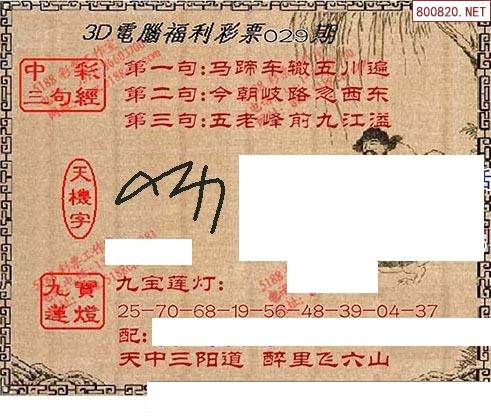 800820.NET
3D電腦福利彩票029期
中彩三句經
第一句:马蹄车辙五川遍
第二句:今朝岐路忽西东
第三句:五老峰前九江溢
天機字
九寶蓮燈
九宝莲灯:
25-70-68-19-56-48-39-04-37
配:
天中三阳道 醉里飞六山